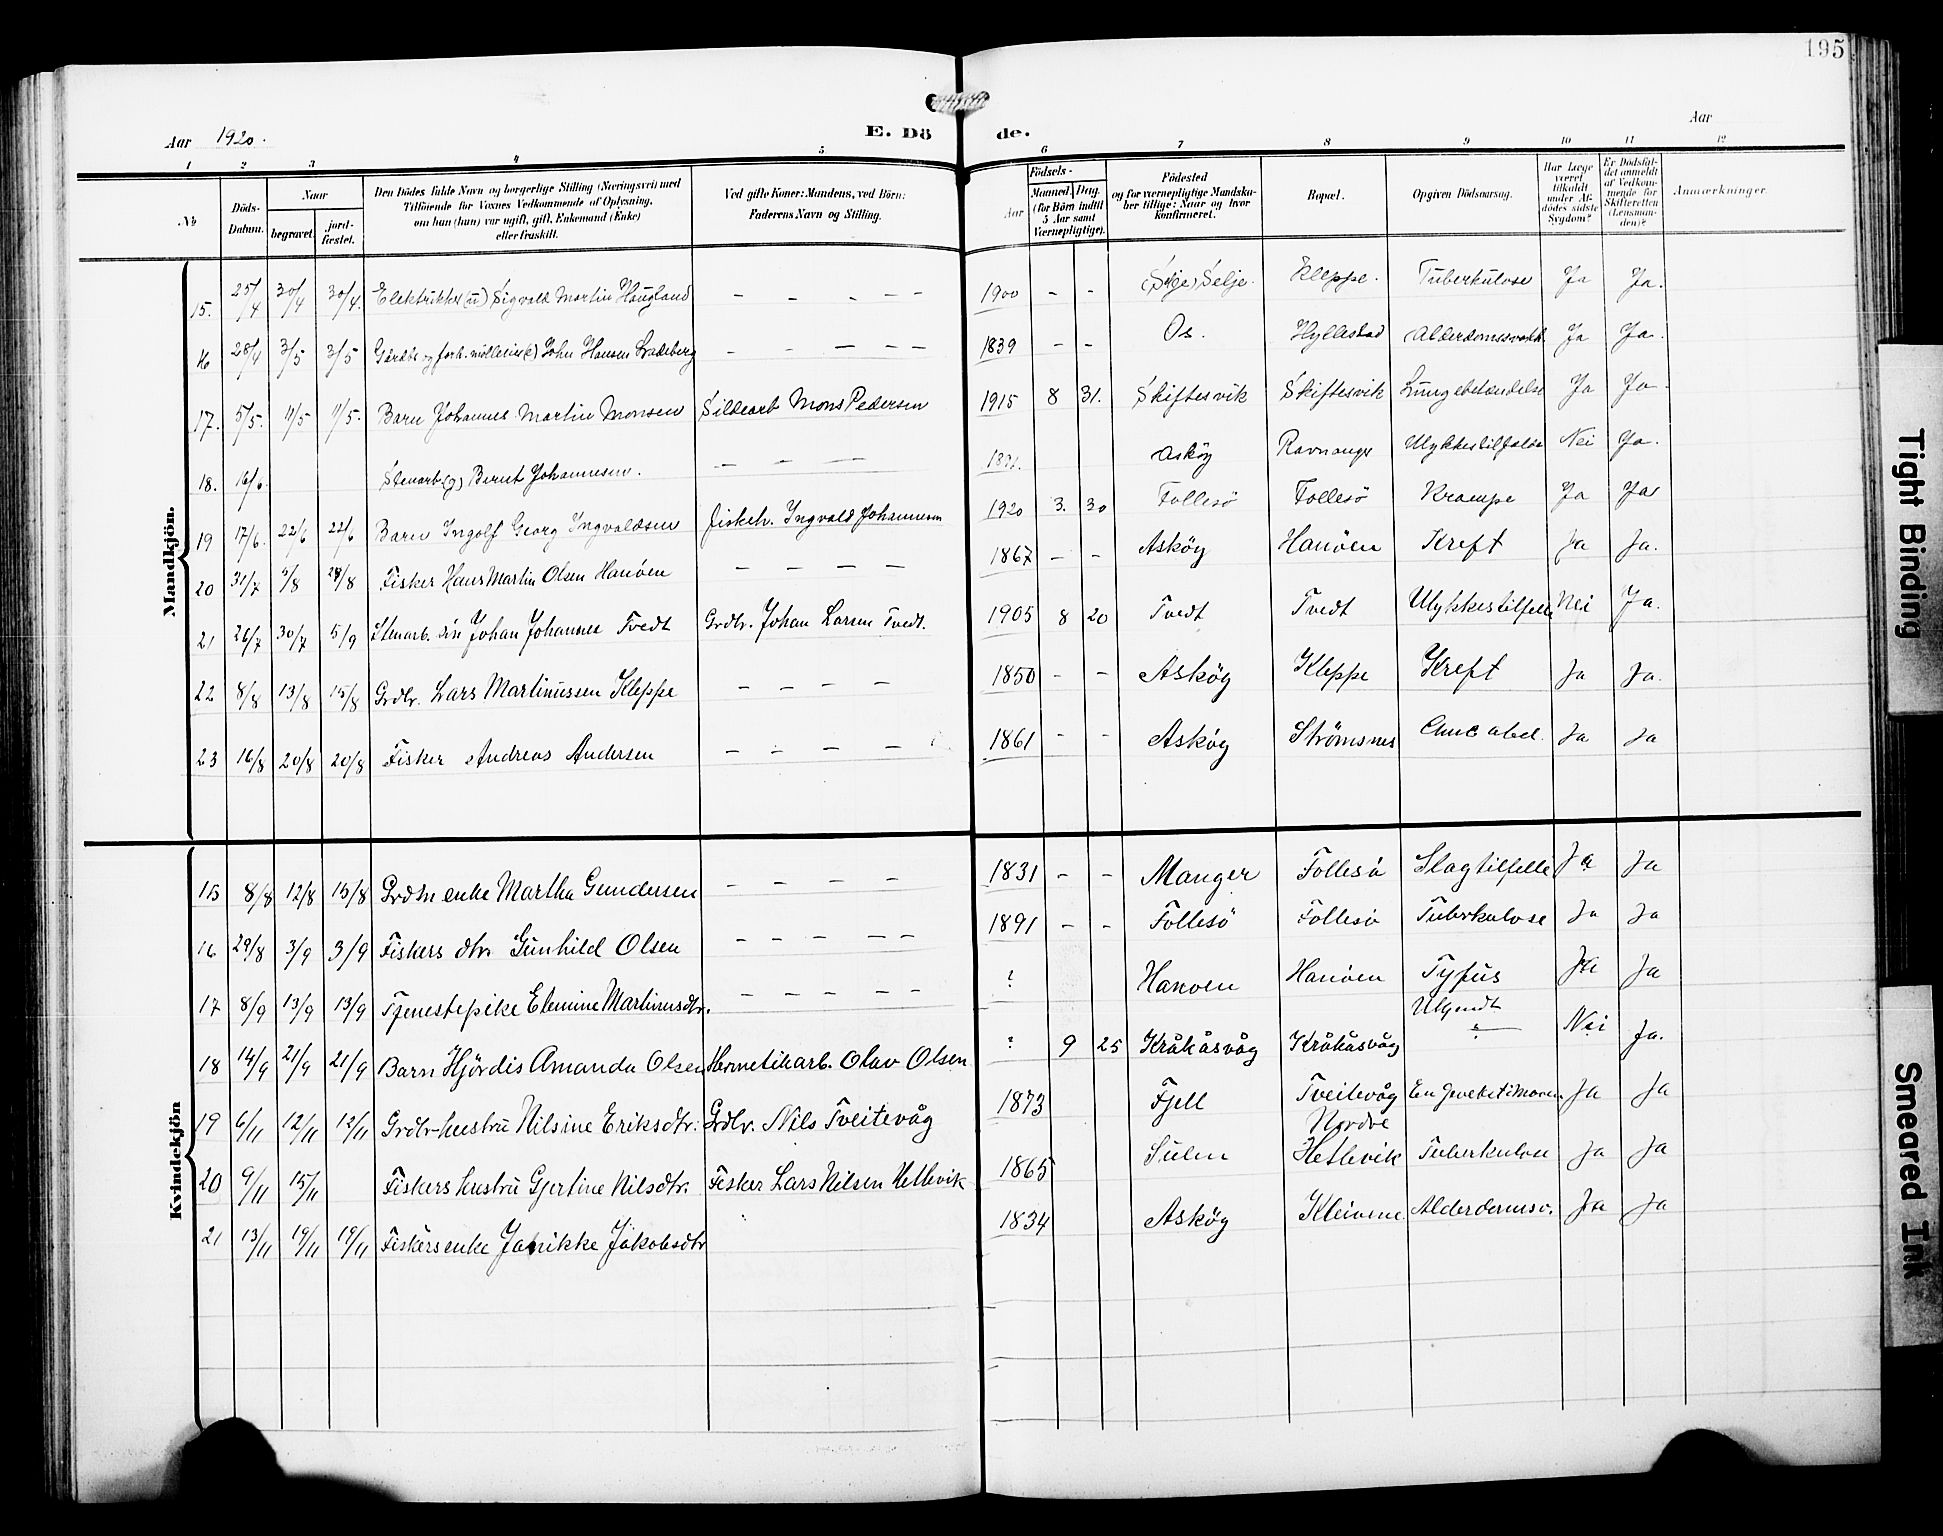 195
Aar 1920.
E. Dö de.
Aar
1 2 3 4 5 6 7 8 9 10 11 12
No
Döds-Datum.
Naar
begravet.
jord-fæstet.
Den Dödes fulde Navn og borgerlige Stilling (Næringsvei) med
Tilföiende for Voxnes Vedkommende af Oplysning,
om han (hun) var ugift, gift, Enkemand (Enke)
eller fraskilt.
Ved gifte Koner: Mandens, ved Börn:
Faderens Navn og Stilling.
Födsels-
Aar
Maaned. Dag.
(for Börn indtil
5 Aar samt
Værnepligtige).
Födested
og for værnepligtige Mandska-
ber tillige: Naar og hvor
konfirmeret.
Bopæl.
Opgiven Dödsaarsag.
Har Læge
været
tilkaldt
under Af-
dödes sidste
Sygdom?
Er Dödsfal-
det anmeldt
af Vedkom-
mende for
Skifteretten
(Lensman-
den)?
Anmærkninger.
Mandkjön.
15. 25/4 30/4 30/4. Elektriker (u) Sigvald Martin Haugland – – – – – 1900 – – Selje. Kleppe. Tuberkulose Ja Ja.
16 28/4 3/5 3/5 John Hansen – – – – – 1839 – – Os. Hyllestad Alderdomssvakh. Ja Ja.
17. 5/5. 11/5 11/5. Barn Johannes Martin Monsen Sildearb Mons Pedersen 1915 8 31. Skiftesvik Skiftesvik Lungebetændelse Ja Ja.
18. 16/6. Stenarb (g) Bernt Johannesen. – – – – Asköy Ravnanger Ulykkestilfælde Nei Ja.
19 17/6. 22/6 22/6 Barn Ingolf Georg Ingvaldsen fiskeh. Ingvald Johannesen 1920 3. 30 Follesö Follesö Krampe Ja Ja
20 31/7 5/8 28/8 Fisker Hans Martin Olsen Hanöen – – – – 1867 – – Asköy Hanöen Kreft Ja Ja.
21 26/7 30/7 5/9 Stenarb. Johan Johannes Tvedt Grdbr. Johan Larsen Tvedt. 1905 8 20 Tvedt Tvedt Ulykkestilfelle Nei Ja.
22 8/8 13/8 15/8 Grdbr. Lars Martinussen Kleppe – – – – 1850 – – Asköy Kleppe Kreft Ja Ja.
23 16/8 20/8 20/8 Fisker Andreas Andersen – – – – 1861 – – Asköy Strömsnes Ja Ja
Kvindekjön
15 8/8 12/8 15/8 enke Martha Gundersen – – – – 1831 – – Manger Follesö Slagtilfelle Ja Ja
16 29/8 3/9 3/9 Fiskers dtr. Gunhild Olsen – – – – – 1891 – – Follesö Follesö Tuberkulose Ja Ja
17 8/9 13/9 13/9 Tjenestepike Elenine Martinusdtr. – – – – – ? Hanöen Hanöen Tyfus Ja Ja
18 14/9 21/9 21/9 Barn Hjördis Amanda Olsen Hermetikarb. Olav Olsen ? 9 25 Kråkåsvåg Kråkåsvåg Ukjendt ? Nei Ja.
19 6/11 12/11 12/11 Grdbr-hustru Nilsine Eriksdtr. Grdbr. Nils Tveitevåg 1873 Fjell Tveitevåg Nordre Ja Ja
20 9/11 15/11 Fiskers hustru Gjertine Nilsdtr. Fisker Lars Nilsen Hetlevik 1865 Sulen Hetlevik Tuberkulose Ja Ja
21 13/11 19/11 19/11 Fiskersenke Janikke Jakobsdtr 1834 Asköy Kleivene. Alderdomssv. Ja Ja
Tight Binding
Smeared Ink